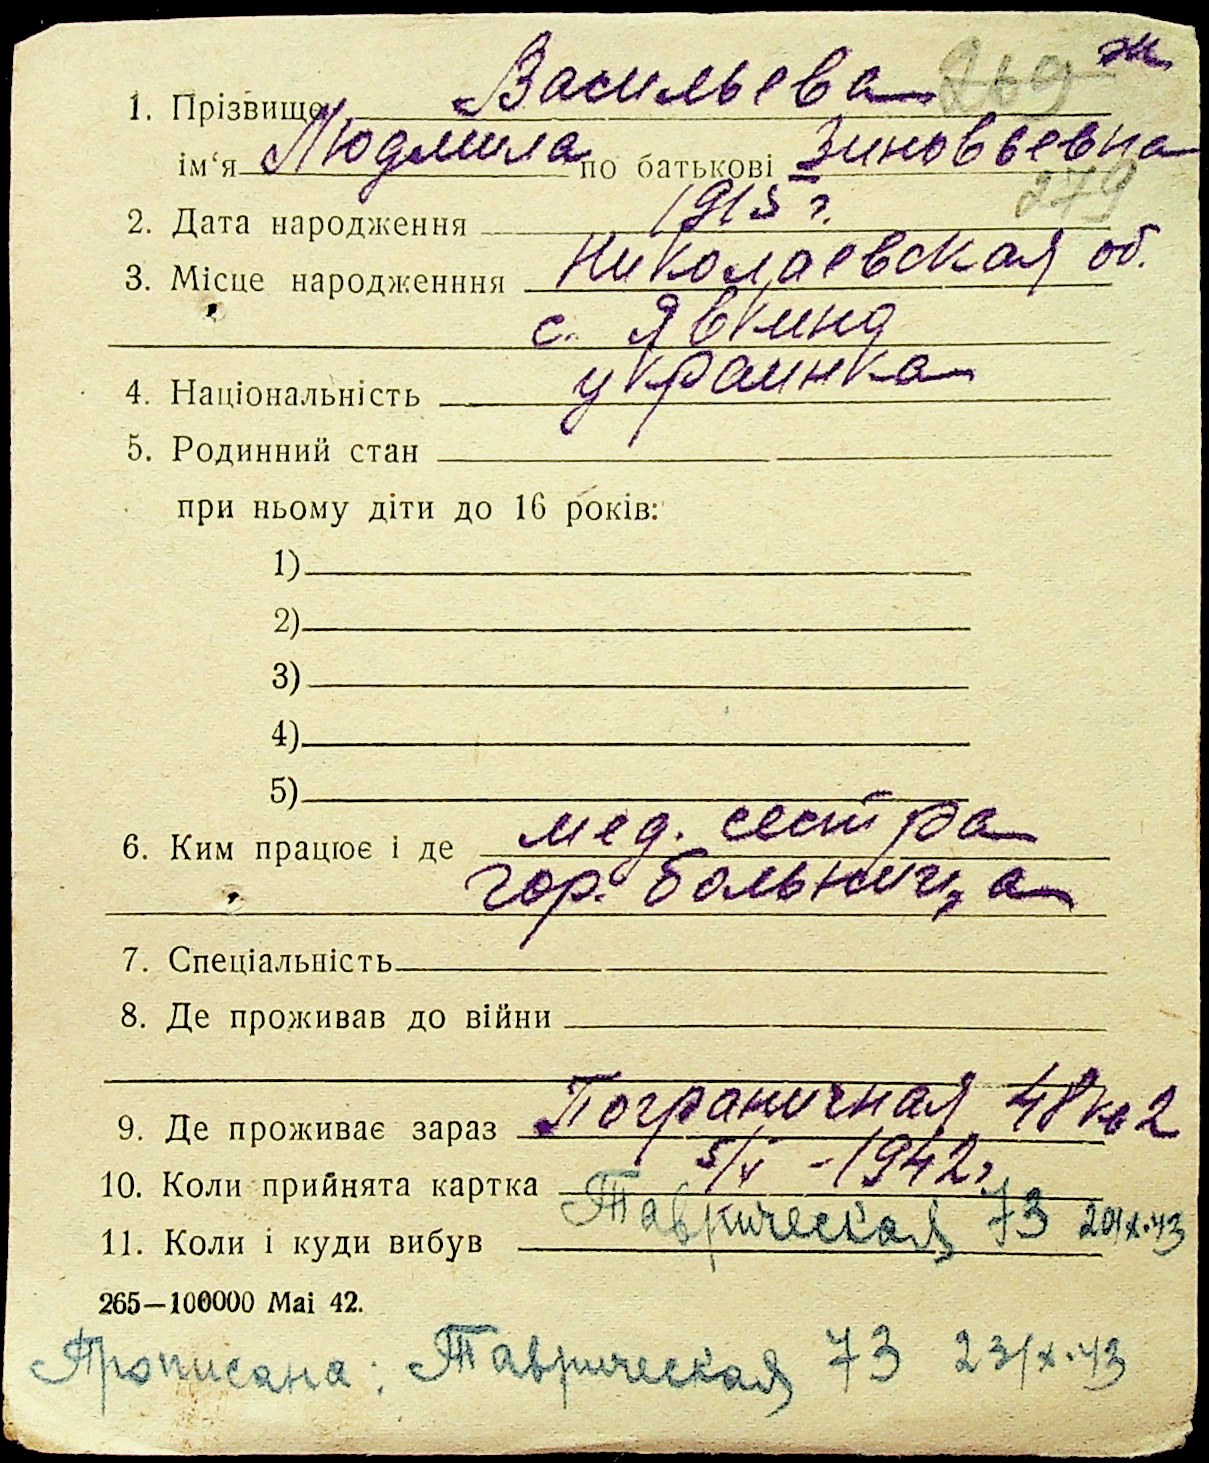 1. Прізвище Васильева 269 ж
ім‘я Людмила по батькові Зиновьевна
279
2. Дата народження 1915 г.
3. Місце народженння Николаевская об.
с. Явкино
4. Національність украинка
5. Родинний стан
при ньому діти до 16 років:
1)
2)
3)
4)
5)
6. Ким працює і де мед. сестра
гор. больница
7. Спеціальність
8. Де проживав до війни
9. Де проживає зараз Пограничная 48 кв 2
10. Коли прийнята картка 5/V - 1942 г
11. Коли і куди вибув Таврическая 73 20/X-43
265—100000 Mai 42.
Прописана: Таврическая 73 23/X-43